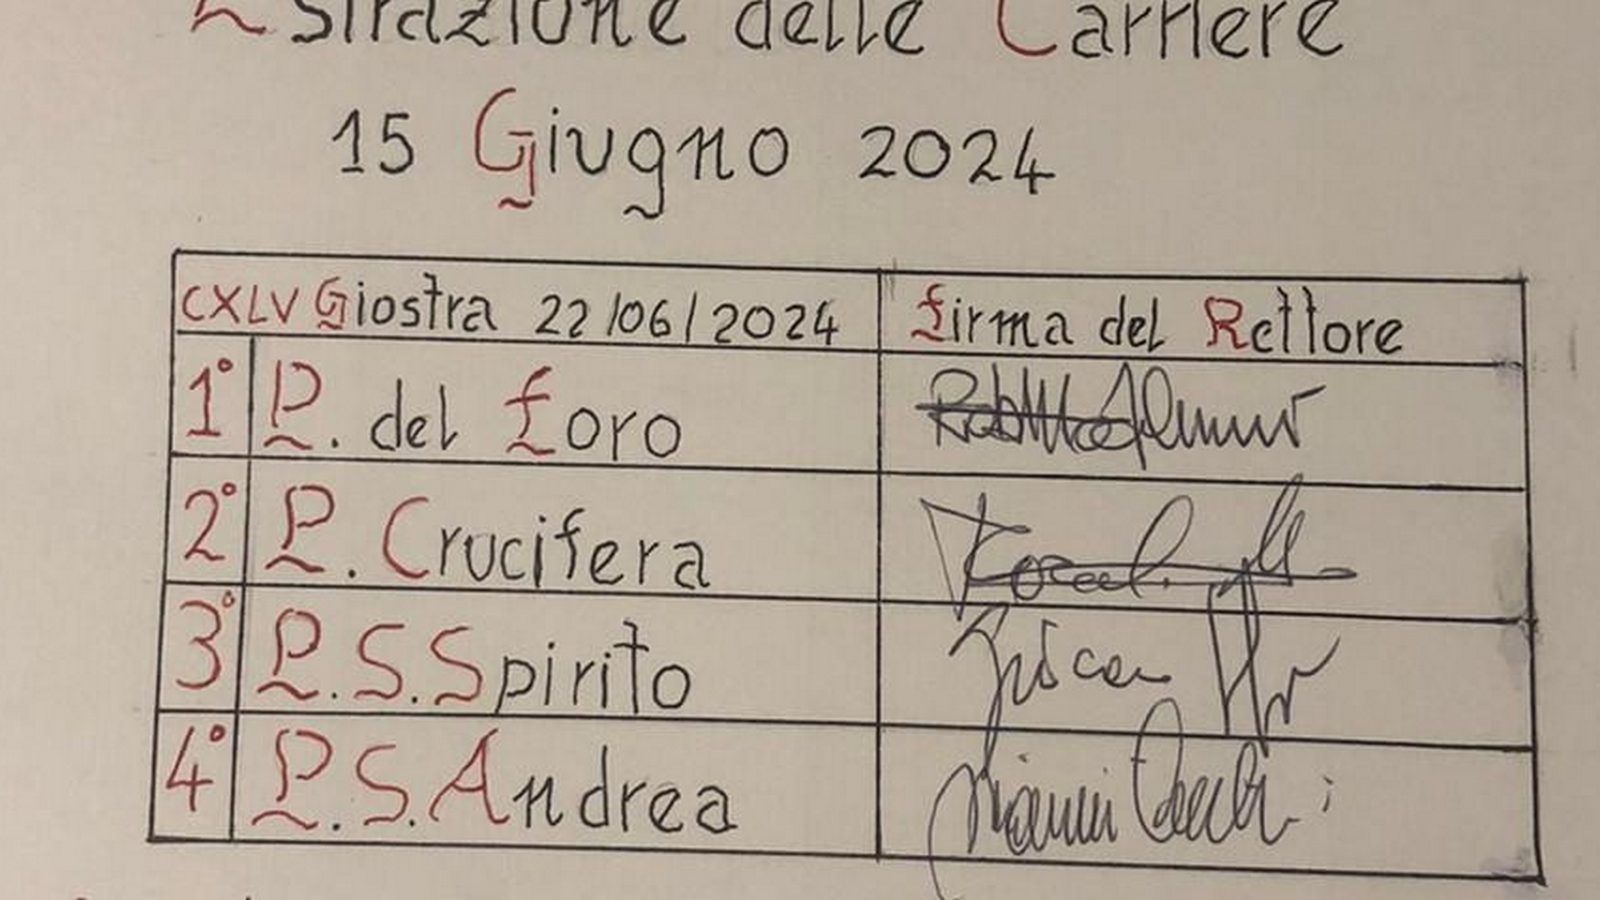 Estrazione delle Carriere
15 Giugno 2024
CXLV Giostra 22/06/2024 Firma del Rettore
1° P. del Foro
2° P. Crucifera
3° P. S. Spirito
4° P. S. Andrea